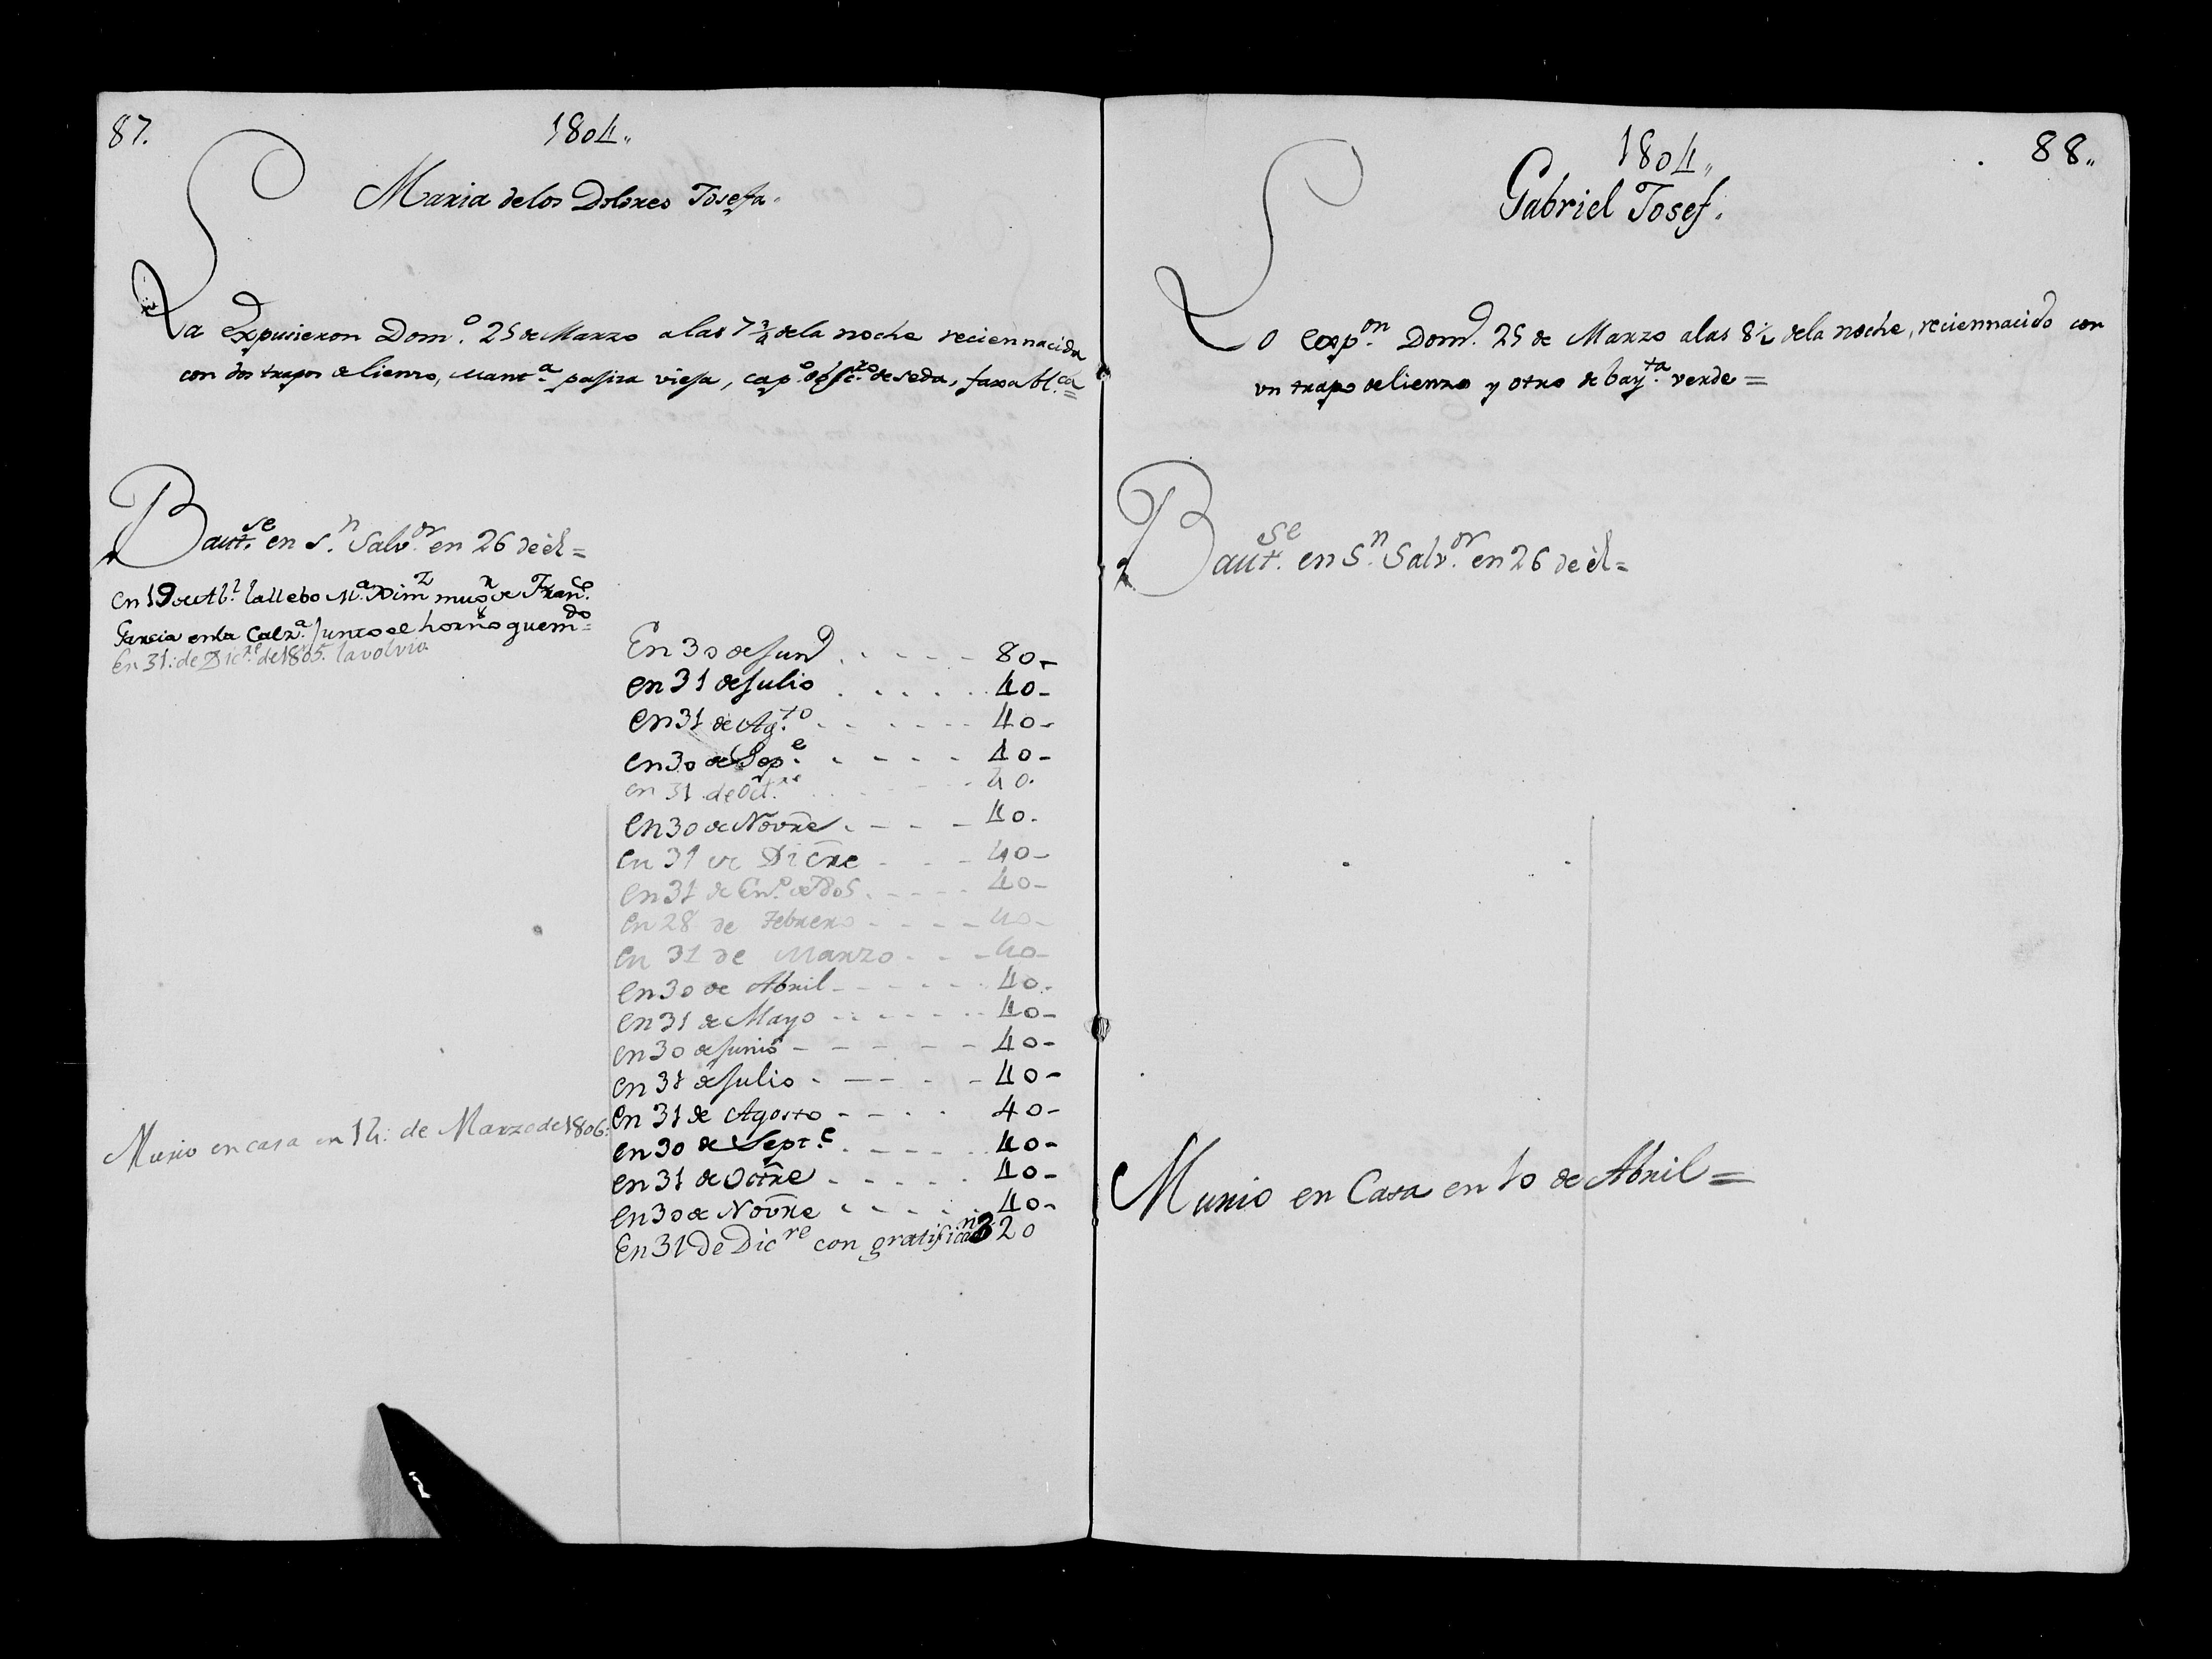 87.
1804.
Maria de los Dolores Josefa.
La Expusieron Dom.º 25 de Marzo a las 7 3/4 de la noche reciennacida
con dos trapos de lienzo, Mant.ª pasiva viesa, cap.º de seda, faxa bl.ca =
Baut.se en S.n Salv.or en 26 de él =
En 19 de Ab.l la llebo M.ª Xim.z mug.r de Fran.co
Garcia en la Calz.ª junto al horno quem.do =
En 31. de Dic.re de 1805. la volvio
En 30 de Jun.º 80-
en 31 de Julio 40-
en 31 de Ag.to 40-
en 30 de Sep.e 40-
en 31 de Oct.re 40.
en 30 de Novre 40.
en 31 de Dicre 40-
en 31 de En.º de 805 40-
en 28 de Febrero 40-
en 31 de Marzo 40-
en 30 de Abril 40.
en 31 de Mayo 40-
en 30 de Junio 40-
en 31 de Julio 40-
en 31 de Agosto 40-
en 30 de Sept.e 40-
en 31 de Octre 40-
en 30 de Novre 40-
En 31 de Dic.re con gratificac.n 320
Murio en casa en 14: de Marzo de 1806:
1804.
88.
Gabriel Josef.
Lo Exp.on Dom.º 25 de Marzo a las 8 1/2 de la noche, reciennacido con
un trapo de lienzo y otro de bay.ta verde =
Baut.se en S.n Salv.or en 26 de él =
Murio en Casa en 10 de Abril =